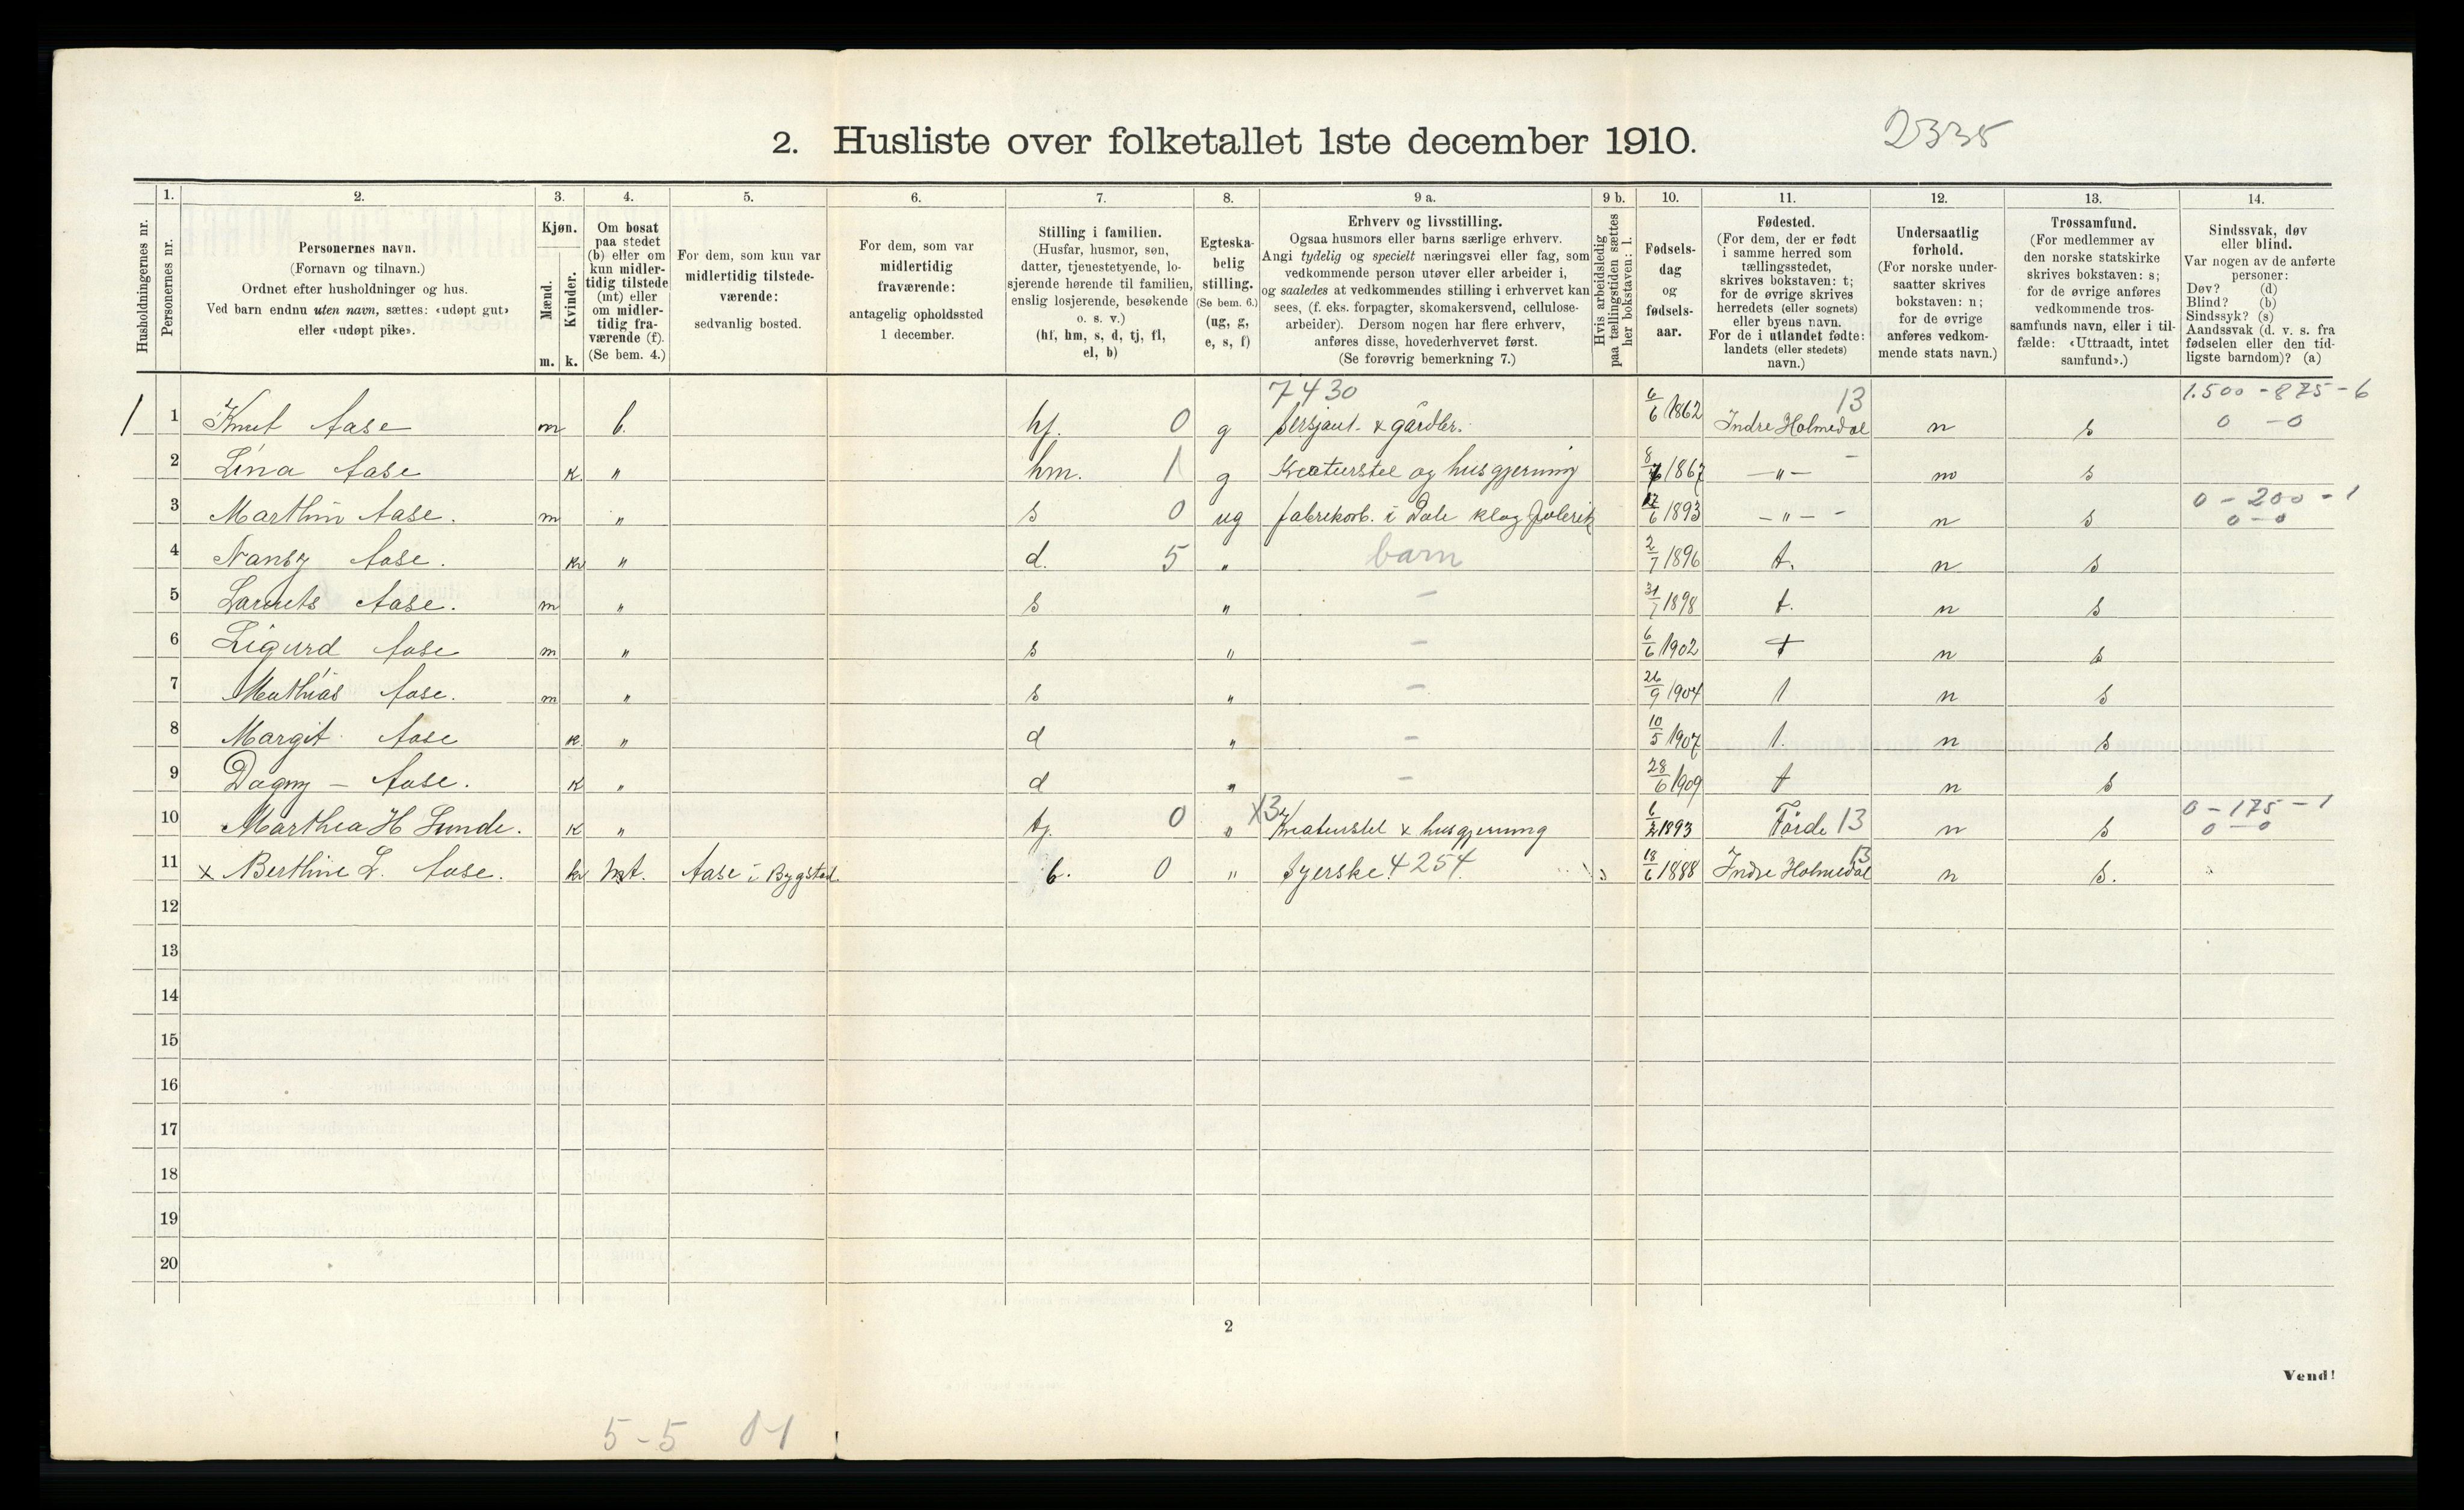 2. Husliste over folketallet 1ste december 1910.
2335
Husholdningernes nr.
1.
Personernes nr.
2.
Personernes navn.
(Fornavn og tilnavn.)
Ordnet efter husholdninger og hus.
Ved barn endnu uten navn, sættes: «udøpt gut»
eller «udøpt pike».
3.
Kjøn.
Mænd.
Kvinder.
m. k.
4.
Om bosat
paa stedet
(b) eller om
kun midler-
tidig tilstede
(mt) eller
om midler-
tidig fra-
værende (f).
(Se bem. 4.)
5.
For dem, som kun var
midlertidig tilstede-
værende:
sedvanlig bosted.
6.
For dem, som var
midlertidig
fraværende:
antagelig opholdssted
1 december.
7.
Stilling i familien.
(Husfar, husmor, søn,
datter, tjenestetyende, lo-
sjerende hørende til familien,
enslig losjerende, besøkende
o. s. v.)
(hf, hm, s, d, tj, fl,
el, b)
8.
Egteska-
belig
stilling.
(Se bem. 6.)
(ug, g,
e, s, f)
9 a.
Erhverv og livsstilling.
Ogsaa husmors eller barns særlige erhverv.
Angi tydelig og specielt næringsvei eller fag, som
vedkommende person utøver eller arbeider i,
og saaledes at vedkommendes stilling i erhvervet kan
sees, (f. eks. forpagter, skomakersvend, cellulose-
arbeider). Dersom nogen har flere erhverv,
anføres disse, hovederhvervet først.
(Se forøvrig bemerkning 7.)
9 b.
Hvis arbeidsledig
paa tællingstiden sættes
her bokstaven: l.
10.
Fødsels-
dag
og
fødsels-
aar.
11.
Fødested.
(For dem, der er født
i samme herred som
tællingsstedet,
skrives bokstaven: t;
for de øvrige skrives
herredets (eller sognets)
eller byens navn.
For de i utlandet fødte:
landets (eller stedets)
navn.)
12.
Undersaatlig
forhold.
(For norske under-
saatter skrives
bokstaven: n;
for de øvrige
anføres vedkom-
mende stats navn.)
13.
Trossamfund.
(For medlemmer av
den norske statskirke
skrives bokstaven: s;
for de øvrige anføres
vedkommende tros-
samfunds navn, eller i til-
fælde: «Uttraadt, intet
samfund».)
14.
Sindssvak, døv
eller blind.
Var nogen av de anførte
personer:
Døv? (d)
Blind? (b)
Sindssyk? (s)
Aandssvak (d. v. s. fra
fødselen eller den tid-
ligste barndom)? (a)
7430 13 1.500 - 875 - 6
1 1 Knut Aase m b. hf. 0 g Sersjant. & gårdbr. 6/6 1862 Indre Holmedal n s 0 - 0
2 Lina Aase k " hm. 1 g Kreaturstel og husgjerning 1867 - " - n s
3 Marthin Aase. m " s 0 ug fabrikarb. i Dale 1893 - " - n s 0 - 200 - 1
0 - 0
4 Nansy Aase. k " d. 5 " barn 2/7 1896 t. n s
5 Aase. m " s " - 31/7 1898 t. n s
6 Sigurd Aase m " s " - 6/6 1902 t n s
7 Mathias Aase. m " s " - 26/9 1904 t n s
8 Margit Aase k " d " - 10/5 1907 t. n s
9 Dagny - Aase. k " d " - 28/6 1909 t n s
10 Marthea H Lunde. k " tj. 0 " Kreaturstel & husgjerning 6/2 1893 Førde 13 n s 0 - 175 - 1
0 - 0
11 x Berthine L. Aase. k mt. Aase i Bygstad. b. 0 " Syerske. 4254 18/6 1888 Indre Holmedal 13 n s.
12
13
14
15
16
17
18
19
20
2
Vend!
5-5